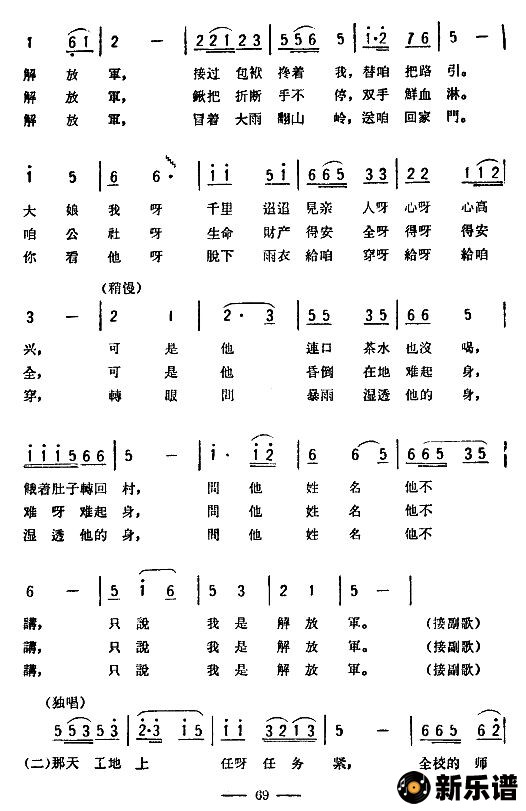 1 6 1 | 2 — | 2 2 1 2 3 | 5 5 6 5 | 1·2 7 6 | 5 — |
解 放 軍， 接过 包袱 搀着 我，替咱 把路 引。
解 放 軍， 鍬把 折断 手不 停，双手 鮮血 淋。
解 放 軍， 冒着 大雨 翻山 岭，送咱 回家 門。
1 5 | 6 6· | 1 1 5 1 | 6 6 5 3 3 | 6 5 2 2 | 1 1 2 |
大 娘 我 呀 千里 迢迢 見亲 人呀 心呀 心高
咱 公 社 呀 生命 財产 得安 全呀 得呀 得安
你 看 他 呀 脫下 雨衣 給咱 穿呀 給呀 給咱
(稍慢)
3 — | 2 1 | 2· 3 | 5 5 3 5 | 6 6 5 |
兴， 可 是 他 連口 茶水 也沒 喝，
全， 可 是 他 昏倒 在地 难起 身，
穿， 轉 眼 間 暴雨 湿透 他的 身，
1 1 1 5 6 6 | 5 — | 1· 1 2 | 6 6 5 | 6 6 5 3 5 |
餓着肚子轉回 村， 問 他 姓 名 他不
难 呀 难起 身， 問 他 姓 名 他不
湿 透 他的 身， 問 他 姓 名 他不
6 — | 5 1 6 | 5 3 2 1 | 5 — |
講， 只 說 我 是 解 放 軍。 (接副歌)
講， 只 說 我 是 解 放 軍。 (接副歌)
講， 只 說 我 是 解 放 軍。 (接副歌)
(独唱)
5 5 3 5 3 | 2·3 1 5 | 1 1 3 2 1 3 | 5 — | 6 6 5 6 2 |
(二)那天 工地 上 任呀 任 务 紧， 全校的 师
— 69 —
新乐谱